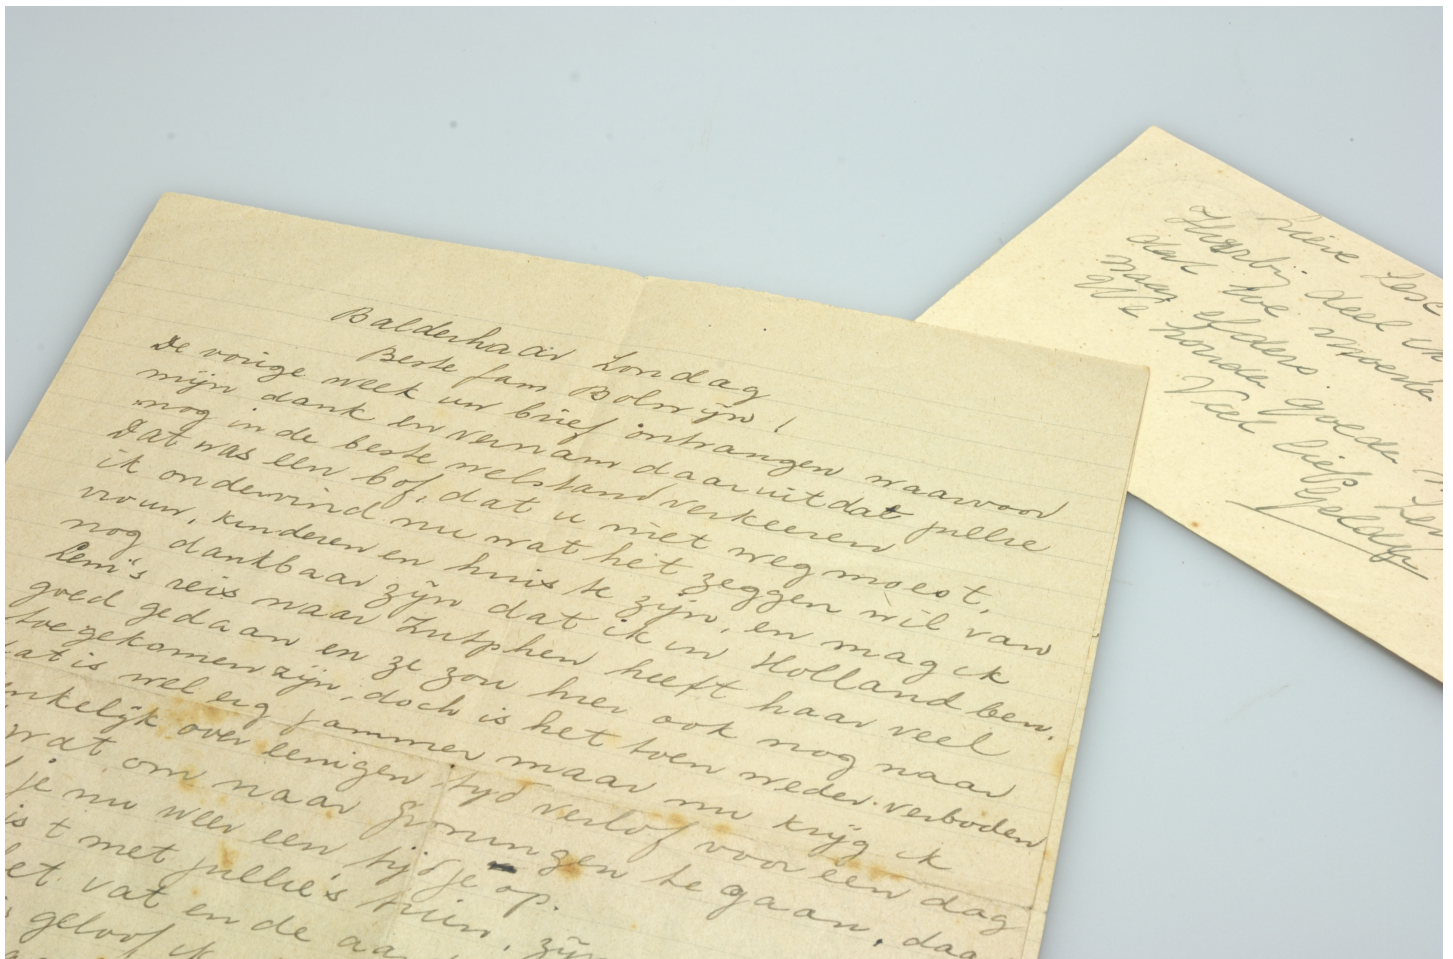 Balderhaar Zondag
Beste fam Bolwijn!
De vorige week uw brief ontvangen waarvoor
mijn dank en vernam daaruit dat jullie
nog in de beste welstand verkeeren
Dat was een bof, dat u niet weg moest,
ik ondervind nu wat het zeggen wil van
vrouw, kinderen en huis te zijn, en mag ik
nog dankbaar zijn dat ik in Holland ben.
Leni's reis naar Zutphen heeft haar veel
goed gedaan en ze zou hier ook nog naar
toegekomen zijn, doch is het toen weder verboden
dat is wel erg jammer maar nu krijg ik
enkelijk over eenigen tijd verlof voor een dag
wat om naar Groningen te gaan, daa
je nu weer een tijdje op.
is t met jullie's tuin, zijn
et vat en de aa
geloof ik
Lieve
Hierbij deel ik
dat we moeder
naar elders.
We houden goeden
Veel liefs